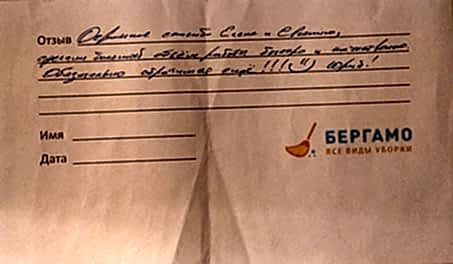 Отзыв Огромное спасибо Елене и Светлане,
сделали большой объём работы быстро и качественно.
Обязательно обратимся ещё !!!(")) Юрий!
Имя
Дата
БЕРГАМО
ВСЕ ВИДЫ УБОРКИ